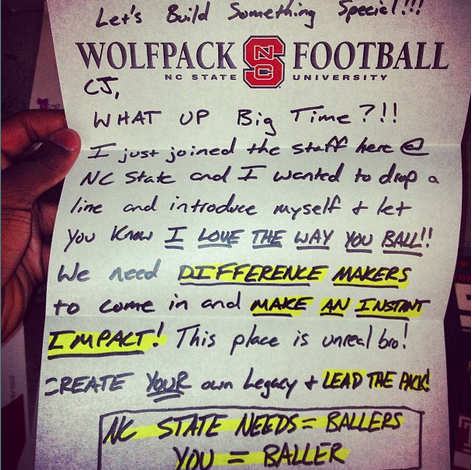 Let's Build Something Special!!!
WOLFPACK NC STATE FOOTBALL
NC STATE UNIVERSITY
CJ,
WHAT UP Big Time?!!
I just joined the staff here @
NC State and I wanted to drop a
line and introduce myself + let
you know I LOVE THE WAY YOU BALL!!
We need DIFFERENCE MAKERS
to come in and MAKE AN INSTANT
IMPACT! This place is unreal bro!
CREATE YOUR own Legacy + LEAD THE PACK!
NC STATE NEEDS = BALLERS
YOU = BALLER